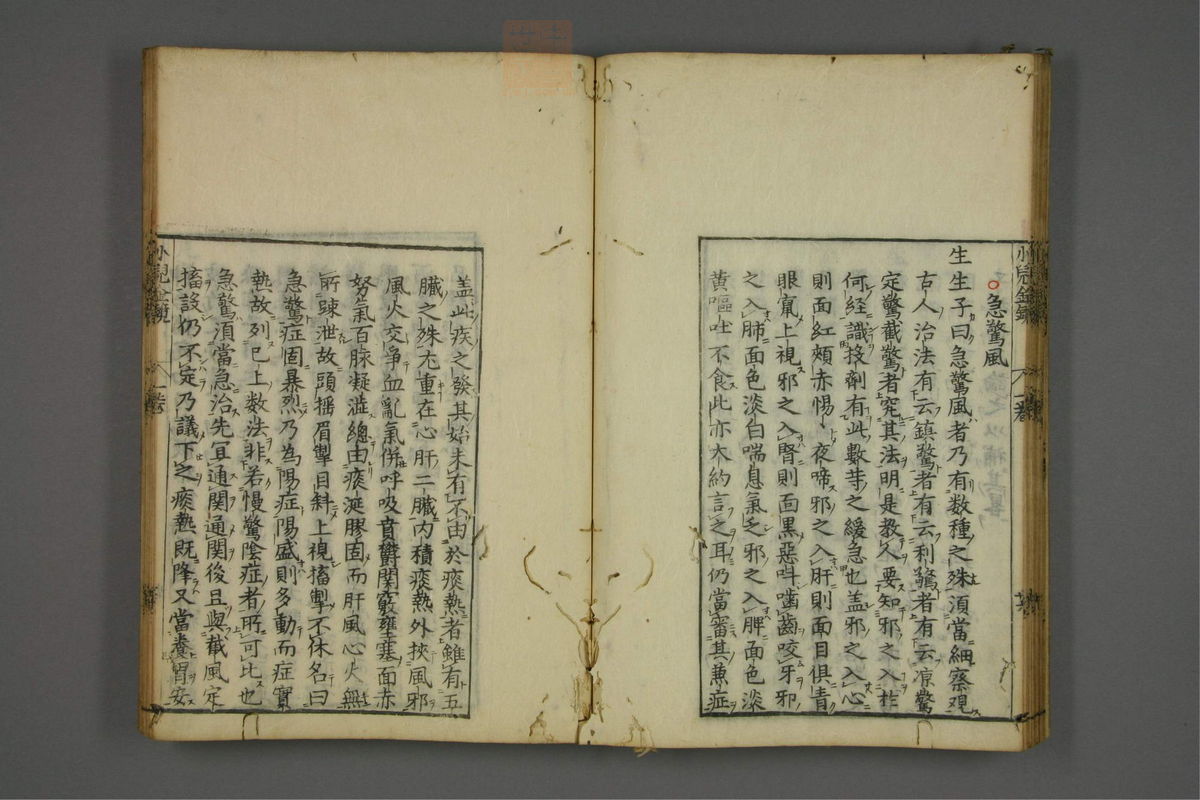 小兒金鏡 一卷
急驚風
生生子曰急驚風者乃有数種之殊須當細察観
古人治法有云鎮驚者有云利驚者有云凉驚
定驚截驚者究其法明是教人要知邪之入於
何経識投劑有此數等之緩急也盖邪之入心
則面紅頰赤惕〻夜啼邪之入肝則面目俱青
眼竄上視邪之入腎則面黒惡叫嚙齒咬牙邪
之入肺面色淡白喘息氣乏邪之入脾面色淡
黄嘔吐不食此亦大約言之耳仍當審其兼症
盖此疾之發其始未有不由於痰熱者雖有五
臟之殊尤重在心肝二臟内積痰熱外挾風邪
風火交爭血亂氣併呼吸賁鬱関竅壅塞面赤
努氣百脉凝澁總由痰涎膠固而肝風心火無
所踈泄故頭揺眉掣目斜上視搐掣不休名曰
急驚症固暴烈乃為陽症陽盛則多動而症實
熱故列已上数法非若慢驚陰症者所可比也
急驚須當急治先宜通関通関後且與截風定
搐設仍不定乃議下之痰熱既降又當養胃安
小兒金鏡 一卷